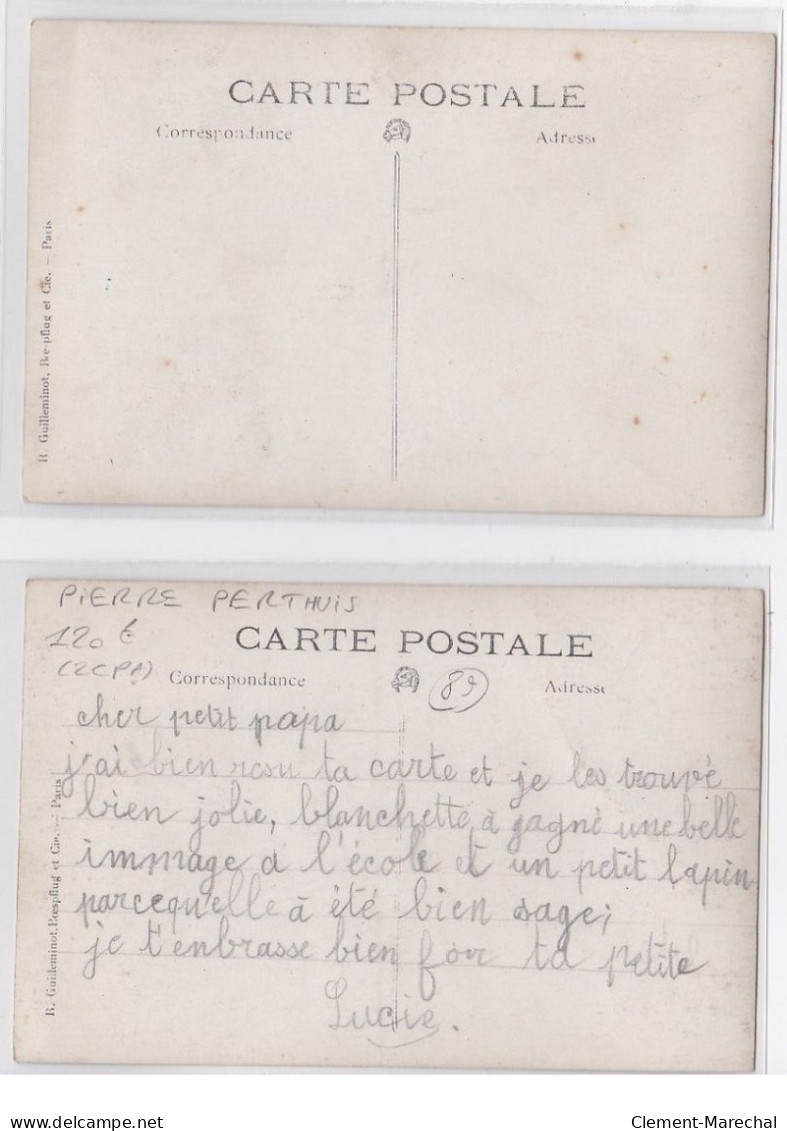 CARTE POSTALE
Correspondance
Adresse
R. Guilleminot, Bœspflug et Cie. — Paris
PIERRE PERTHUIS
120 €
(2CPA)
CARTE POSTALE
Correspondance
89
Adresse
cher petit papa
j'ai bien resu ta carte et je les trouvé
bien jolie, blanchette à gagné une belle
immage a l'école et un petit lapin
parcequelle à été bien sage;
je t'enbrasse bien for ta petite
Lucie.
R. Guilleminot, Bœspflug et Cie. — Paris
Clement-Marechal